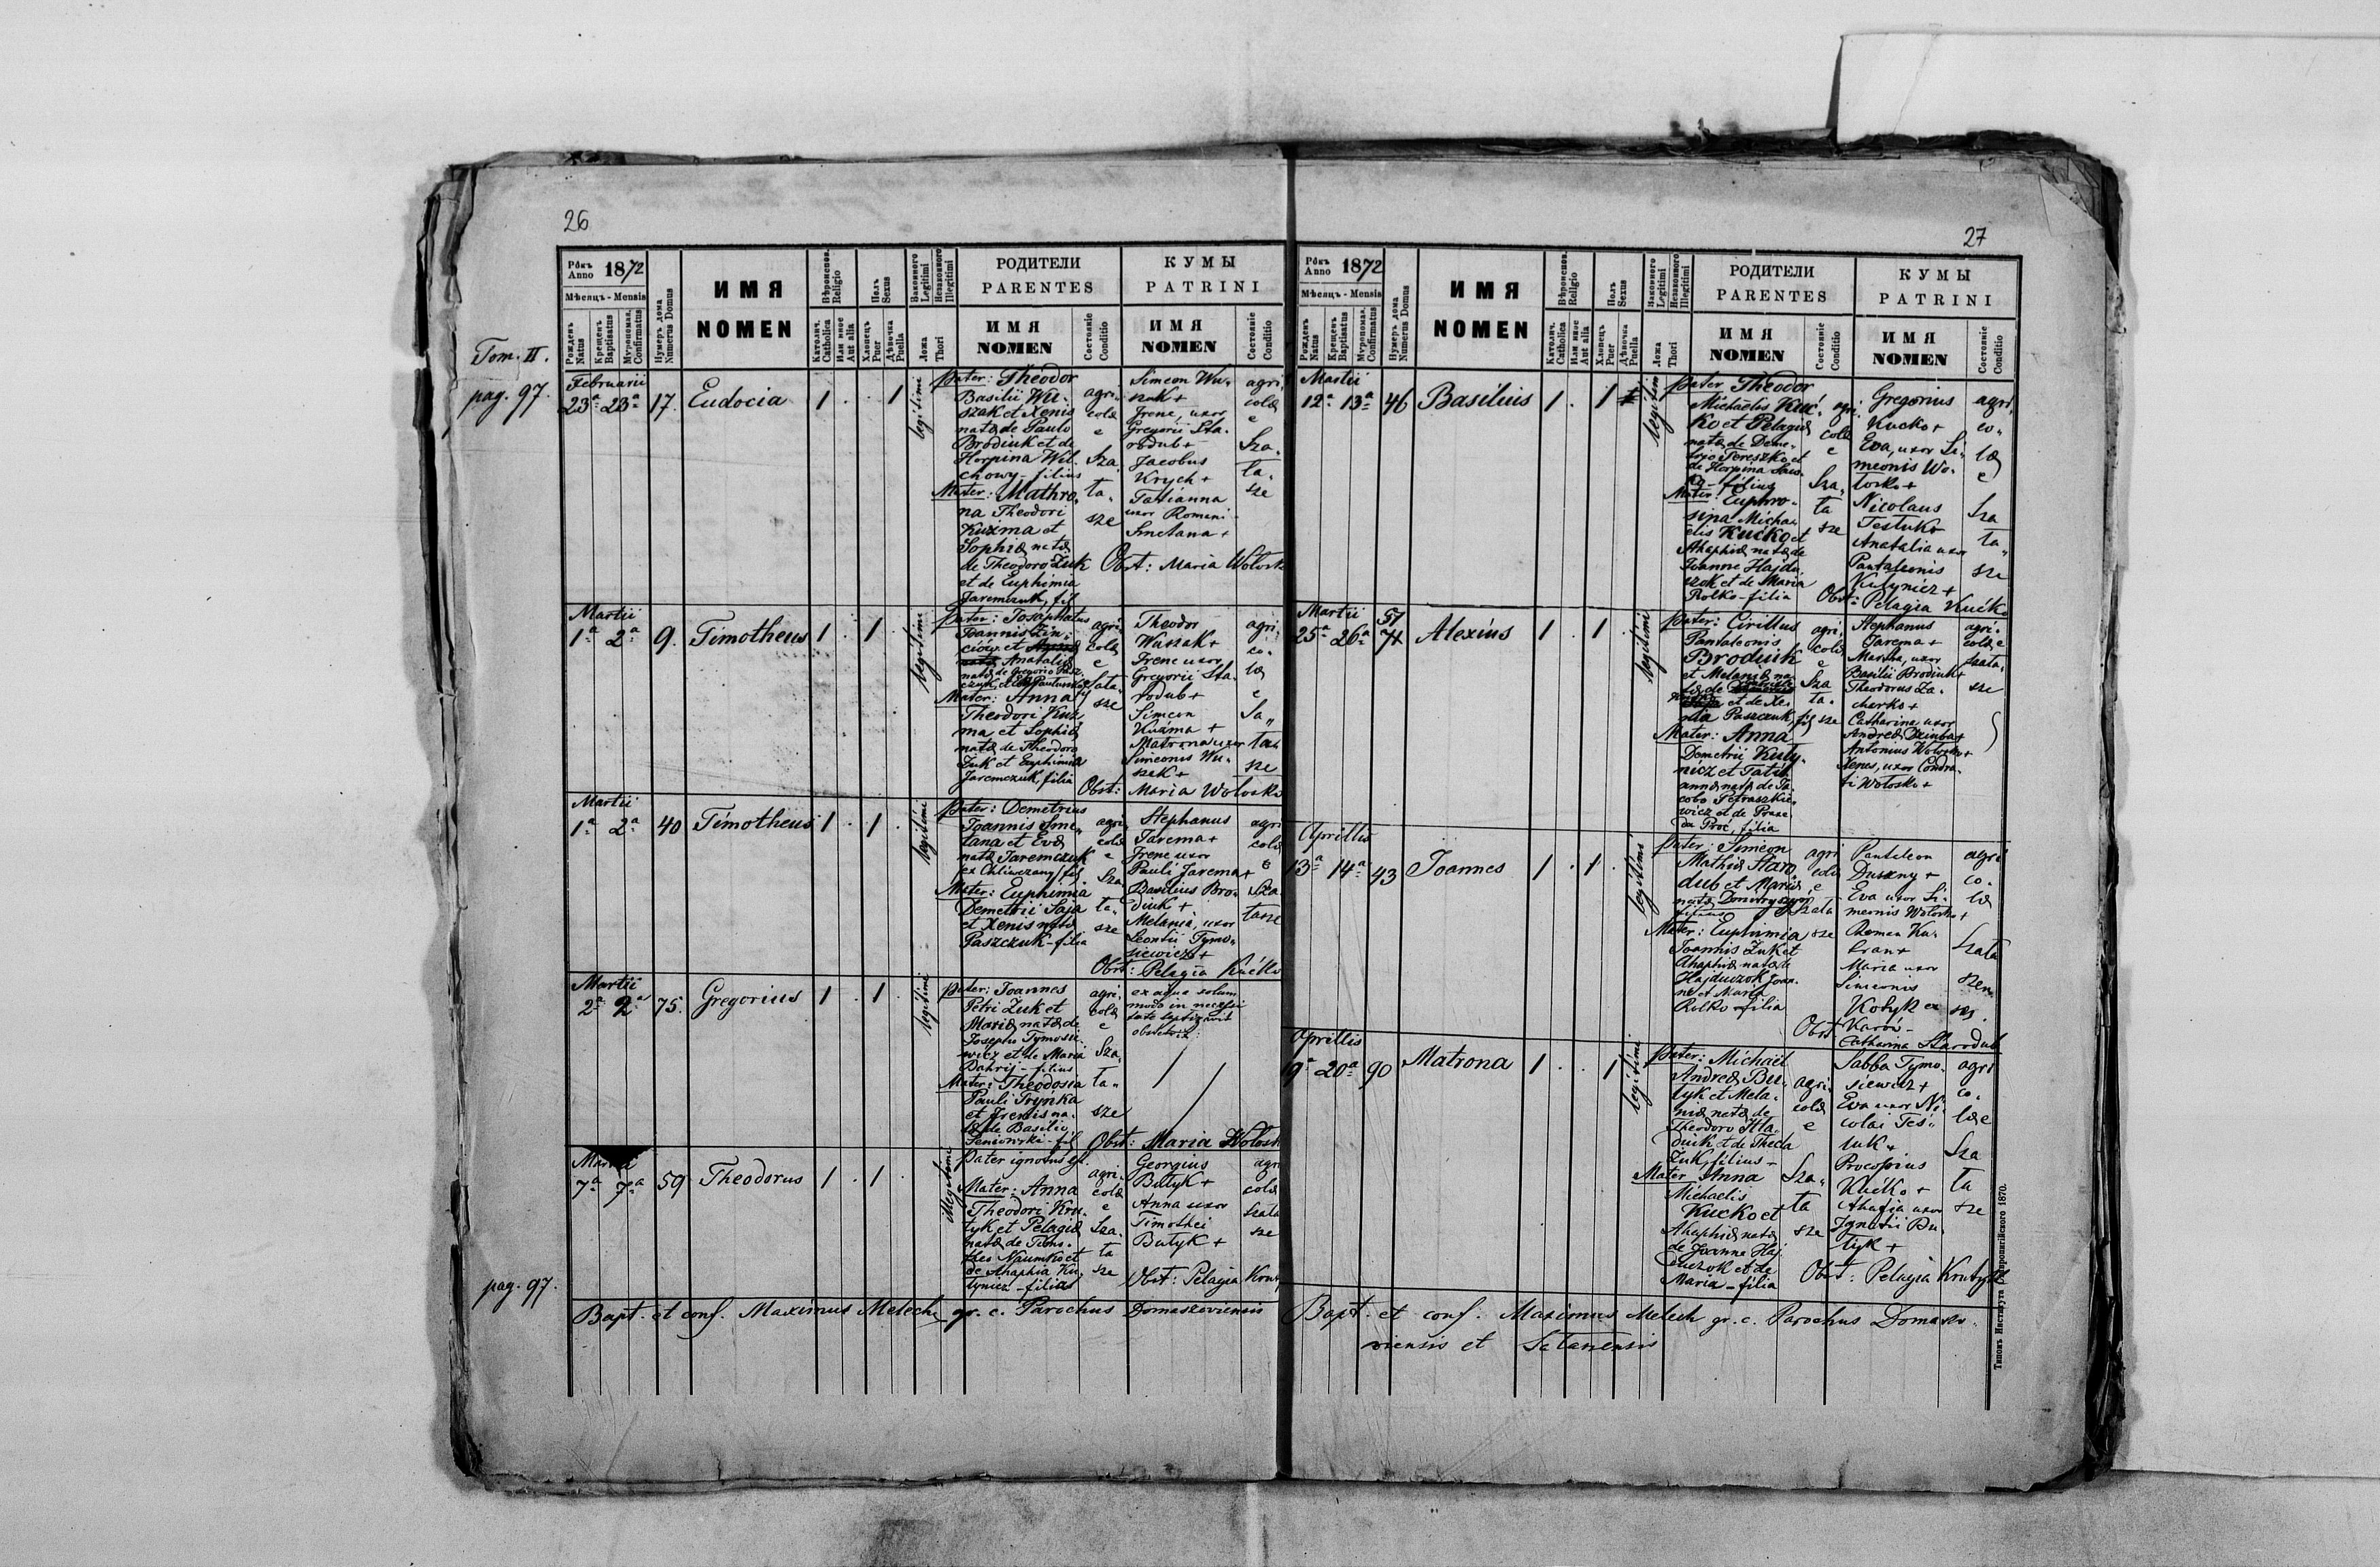 26
Tom. II.
pag. 97.
Рôкъ Anno 1872
Мѣсяцъ - Mensis
Рожденъ Natus
Крещенъ Baptisatus
Муропомаз. Confirmatus
Нумеръ дома Numerus Domus
ИМЯ
NOMEN
Вѣроиспов. Religio
Католич. Catholica
Или иное Aut alia
Полъ Sexus
Хлопецъ Puer
Дѣвочка Puella
Законного Legitimi
Незаконного Illegitimi
Ложа Thori
РОДИТЕЛИ
PARENTES
ИМЯ
NOMEN
Состояніе Conditio
КУМЫ
PATRINI
ИМЯ
NOMEN
Состояніе Conditio
Februarii
23a 23a 17. Eudocia 1 . 1 legitimi
Pater: Theodor
Basilii Wu-
szak et Xenis
natæ de Paulo
Brodiuk et de
Horpina Wil-
chowy, filius
Mater: Mathro-
na Theodori
Kuzma et
Sophiæ natæ
de Theodoro Zuk
et de Euphimia
Jaremczuk, fil
agri-
colæ
e
Sza-
ta-
sze
Simeon Wu-
szak +
Irene, uxor
Gregorii Sta-
rodub +
Jacobus
Krych +
Tatianna
uxor Romani
Smetana +
agri
colæ
e
Sza-
ta-
sze
Obst: Maria Wolosk
Martii
1a 2a 9. Timotheus 1 . 1 . legitimi
Pater: Josaphatus
Joannis
et
Anataliæ
natæ de Gregorio
Mater: Anna
Theodori Kuz
ma et Sophiæ
natæ de Theodoro
Zuk et Euphimia
Jaremczuk, filia
agri-
colæ
e
Szata-
sze
Theodor
Wuszak +
Irene uxor
Gregorii Sta-
rodub +
Simeon
Kuzma +
Matrona uxor
Simeonis Wu-
szak +
agri-
co-
læ
e
Sza-
ta
sze
Obst: Maria Wolosko
Martii
1a 2a 40 Timotheus 1 . 1 . legitimi
Pater: Demetrius
Joannis Sme-
tana et Evæ
natæ Jaremczuk
ex
Mater: Euphimia
Demetrii Saja
et Xenis natæ
Paszczuk - filia
agri
colæ
e
Sza
ta-
sze
Stephanus
Jarema +
Irene uxor
Pauli Jarema +
Basilius Bro-
diuk +
Melania, uxor
Leontii Tymo-
siewicz +
agri
colæ
e
Sza
tasze
Obst: Pelagia Kućko
Martii
2a 2a 75. Gregorius 1 . 1 . legitimi
Pater: Joannes
Petri Zuk et
Mariæ natæ de
Josepho Tymosie-
wicz et de Maria
filius
Mater: Theodosia
Pauli
et Irenis na-
tæ de Basilio
fil
agri-
colæ
e
Sza-
ta-
sze
ex aqua solum
modo in necessi
tate baptizavit
obstetrix
Obst: Maria Wolosk
Martii
7a 7a 59 Theodorus 1 . 1 . illegitimi
Pater ignotus est.
Mater: Anna
Theodori Kru-
tyk et Pelagiæ
natæ de Timo-
theo Naumko et
de Ahaphia Ku-
tynicz - filia
agri-
colæ
e
Sza-
ta
sze
Georgius
Butyk +
Anna uxor
Timothei
Butyk +
agri
colæ
Szata
sze
Obst: Pelagia Krut
pag. 97.
Bapt. et conf. Maximus Melech gr. c. Parochus Domaszoviensis
27
Рôкъ Anno 1872
Мѣсяцъ - Mensis
Рожденъ Natus
Крещенъ Baptisatus
Муропомаз. Confirmatus
Нумеръ дома Numerus Domus
ИМЯ
NOMEN
Вѣроиспов. Religio
Католич. Catholica
Или иное Aut alia
Полъ Sexus
Хлопецъ Puer
Дѣвочка Puella
Законного Legitimi
Незаконного Illegitimi
Ложа Thori
РОДИТЕЛИ
PARENTES
ИМЯ
NOMEN
Состояніе Conditio
КУМЫ
PATRINI
ИМЯ
NOMEN
Состояніе Conditio
Martii
12a 13a 46 Basilius 1 . 1 legitim
Pater Theodor
Michaelis Kuć-
ko et Pelagiæ
natæ de Deme-
trio Tereszko et
de Horpina
filius
Mater: Euphro-
sina Micha-
elis Kućko et
Ahaphiæ natæ de
Joanne Hajdu-
czok et de Maria
Rolko - filia
agri-
colæ
e
Sza-
ta
sze
Gregorius
Kucko +
Eva, uxor Si-
meonis Wo-
losko +
Nicolaus
Testuk +
Anatalia uxor
Pantaleonis
Kutynicz +
agri,
co-
læ
e
Sza
ta-
sze
Obst: Pelagia Kućko
Martii
25a 26a 51 Alexius 1 . 1 . legitimi
Pater: Cirillus
Pantaleonis
Brodiuk
et Melaniæ na-
tæ de
et de Xe-
nia Paszczuk, fil
Mater: Anna
Demetrii Kuty-
nicz et Tati-
annæ natæ de Ja-
cobo Petraszkie-
wicz et de Parae
da Proć, filia
agri-
colæ
e
Sza
ta-
sze
Stephanus
Jarema +
Martha, uxor
Basilii Brodiuk +
Theodorus Za-
charko +
Catharina, uxor
Andreæ Dziuba +
Antonius Wolosko +
Xenes, uxor Condra-
ti Wolosko +
agri-
colæ e
szata-
sze
Aprillis
13a 14a 43 Joannes 1 . 1 . legitimi
Pater: Simeon
Mathiæ Staro
dub et Mariæ
natæ
filius
Mater: Euphimia
Joannis Zuk et
Ahaphiæ natæ de
Hajduczok Joan-
ne et Maria
Rolko filia
agri
colæ
e
Szata
sze
Panteleon
Duszny +
Eva uxor Si-
meonis Wolosko +
Roman Ku-
ran +
Maria uxor
Simeonis
Kotyk ex
Karów -
agri
co-
læ
Szata
Obst Catharina Starodub
Aprillis
19a 20a 90 Matrona 1 . . 1 legitimi
Pater: Michael
Andreæ Bu-
tyk et Mela-
niæ natæ de
Theodoro Hla-
diuk et de Thecla
Zuk, filius -
Mater Anna
Michaelis
Kucko et
Ahaphiæ natæ
de Joanne Haj-
duczok et de
Maria - filia
agri-
colæ
e
Sza-
ta
sze
Sabba Tymo-
siewicz +
Eva uxor Ni-
colai Tes-
luk +
Procopius
Kućko +
Ahafia uxor
Ignatii Bu-
tyk +
agri
co-
læ e
Sza
ta
sze
Obst: Pelagia Krutyk
Bapt. et conf. Maximus Melech gr. c. Parochus Domaszo-
viensis et Satanensis
Типомъ Института Ставропигійского 1870.